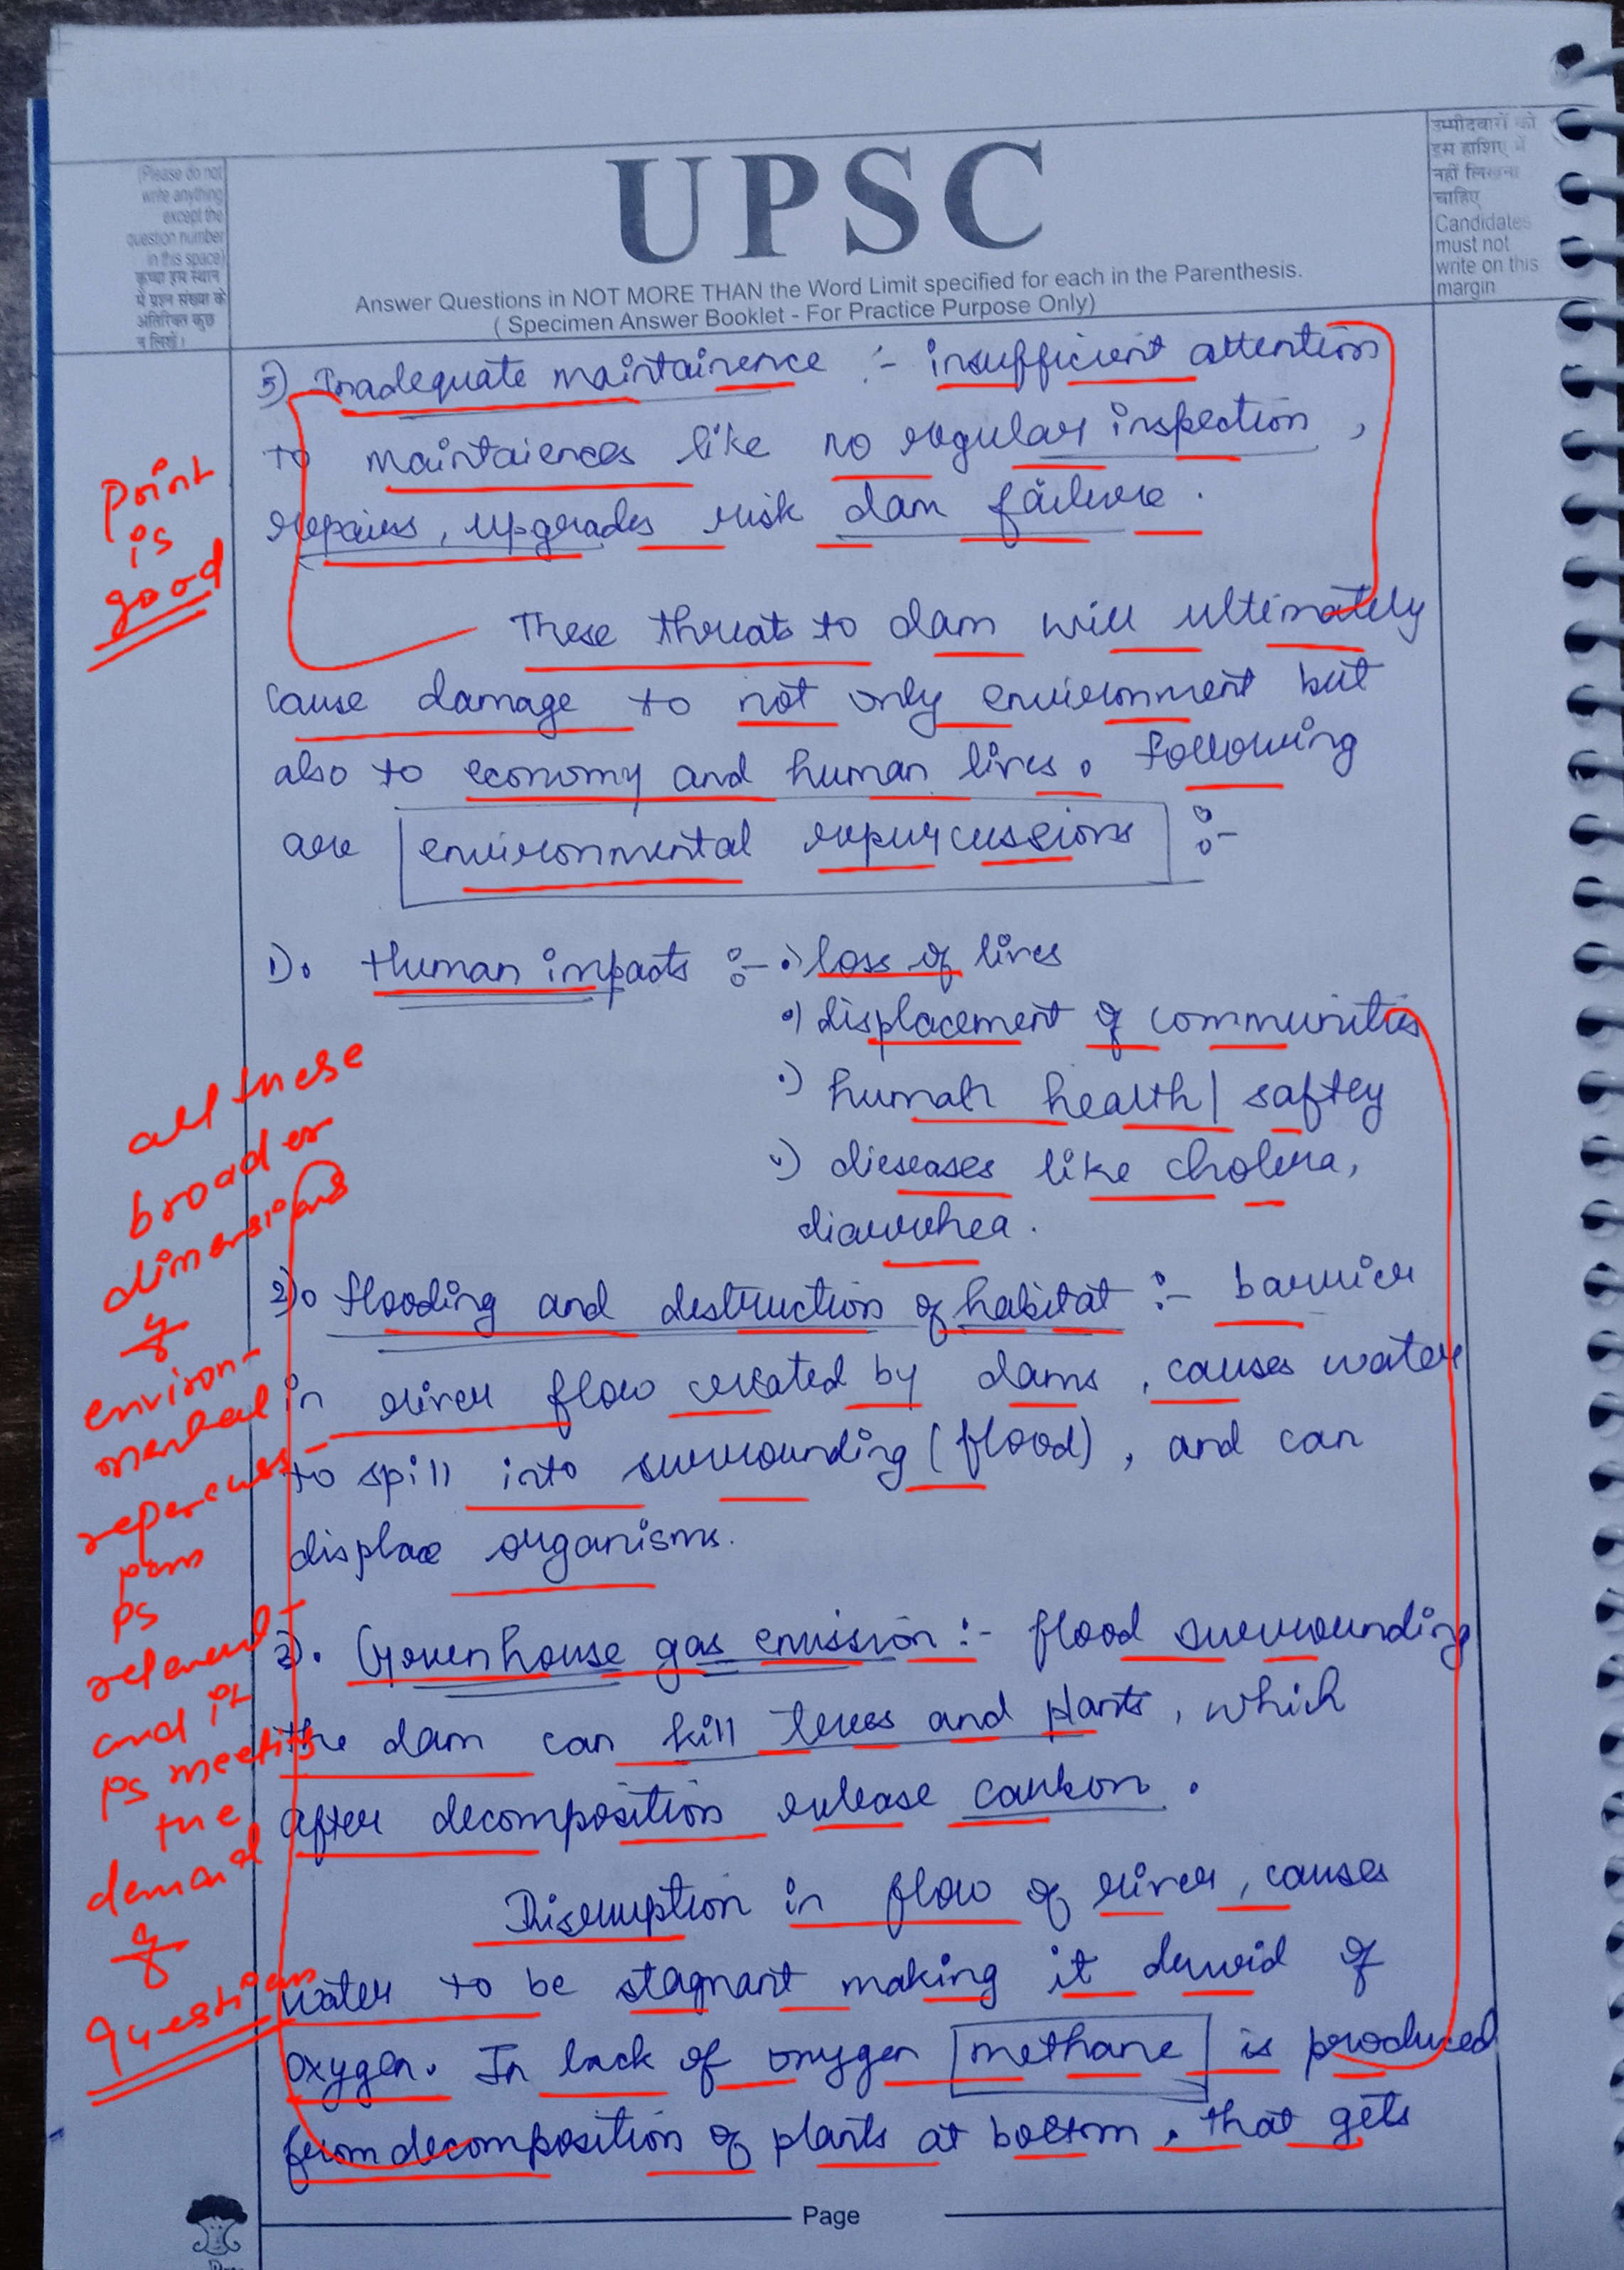 (Please do not
write anything
except the
question number
in this space)
कृपया इस स्थान
में प्रश्न संख्या के
अतिरिक्त कुछ
न लिखें।
UPSC
Answer Questions in NOT MORE THAN the Word Limit specified for each in the Parenthesis.
( Specimen Answer Booklet - For Practice Purpose Only)
उम्मीदवारों को
इस हाशिए में
नहीं लिखना
चाहिए
Candidates
must not
write on this
margin
5) Inadequate maintainence :- insufficient attention
to maintaiences like no regular inspection,
repairs, upgrades risk dam failure.
These threats to dam will ultimately
cause damage to not only environment but
also to economy and human lives. Following
are environmental repurcussions :-
1). Human impacts :- •) loss of lives
•) displacement of communities
•) human health/ saftey
•) dieseases like cholera,
diarrhea.
2). flooding and destruction of habitat :- barrier
in river flow created by dams, causes water
to spill into surrounding (flood), and can
displace organisms.
3). Greenhouse gas emission :- flood surrounding
the dam can kill trees and plants, which
after decomposition release carbon.
Disruption in flow of river, causes
water to be stagnant making it devoid of
oxygen. In lack of oxygen methane is produced
from decomposition of plants at bottom, that gets
Point
is
good
all these
broader
dimensions
of
environ-
mental
repercuss-
ions
is
relevant
and it
is meeting
the
demand
of
question
Page